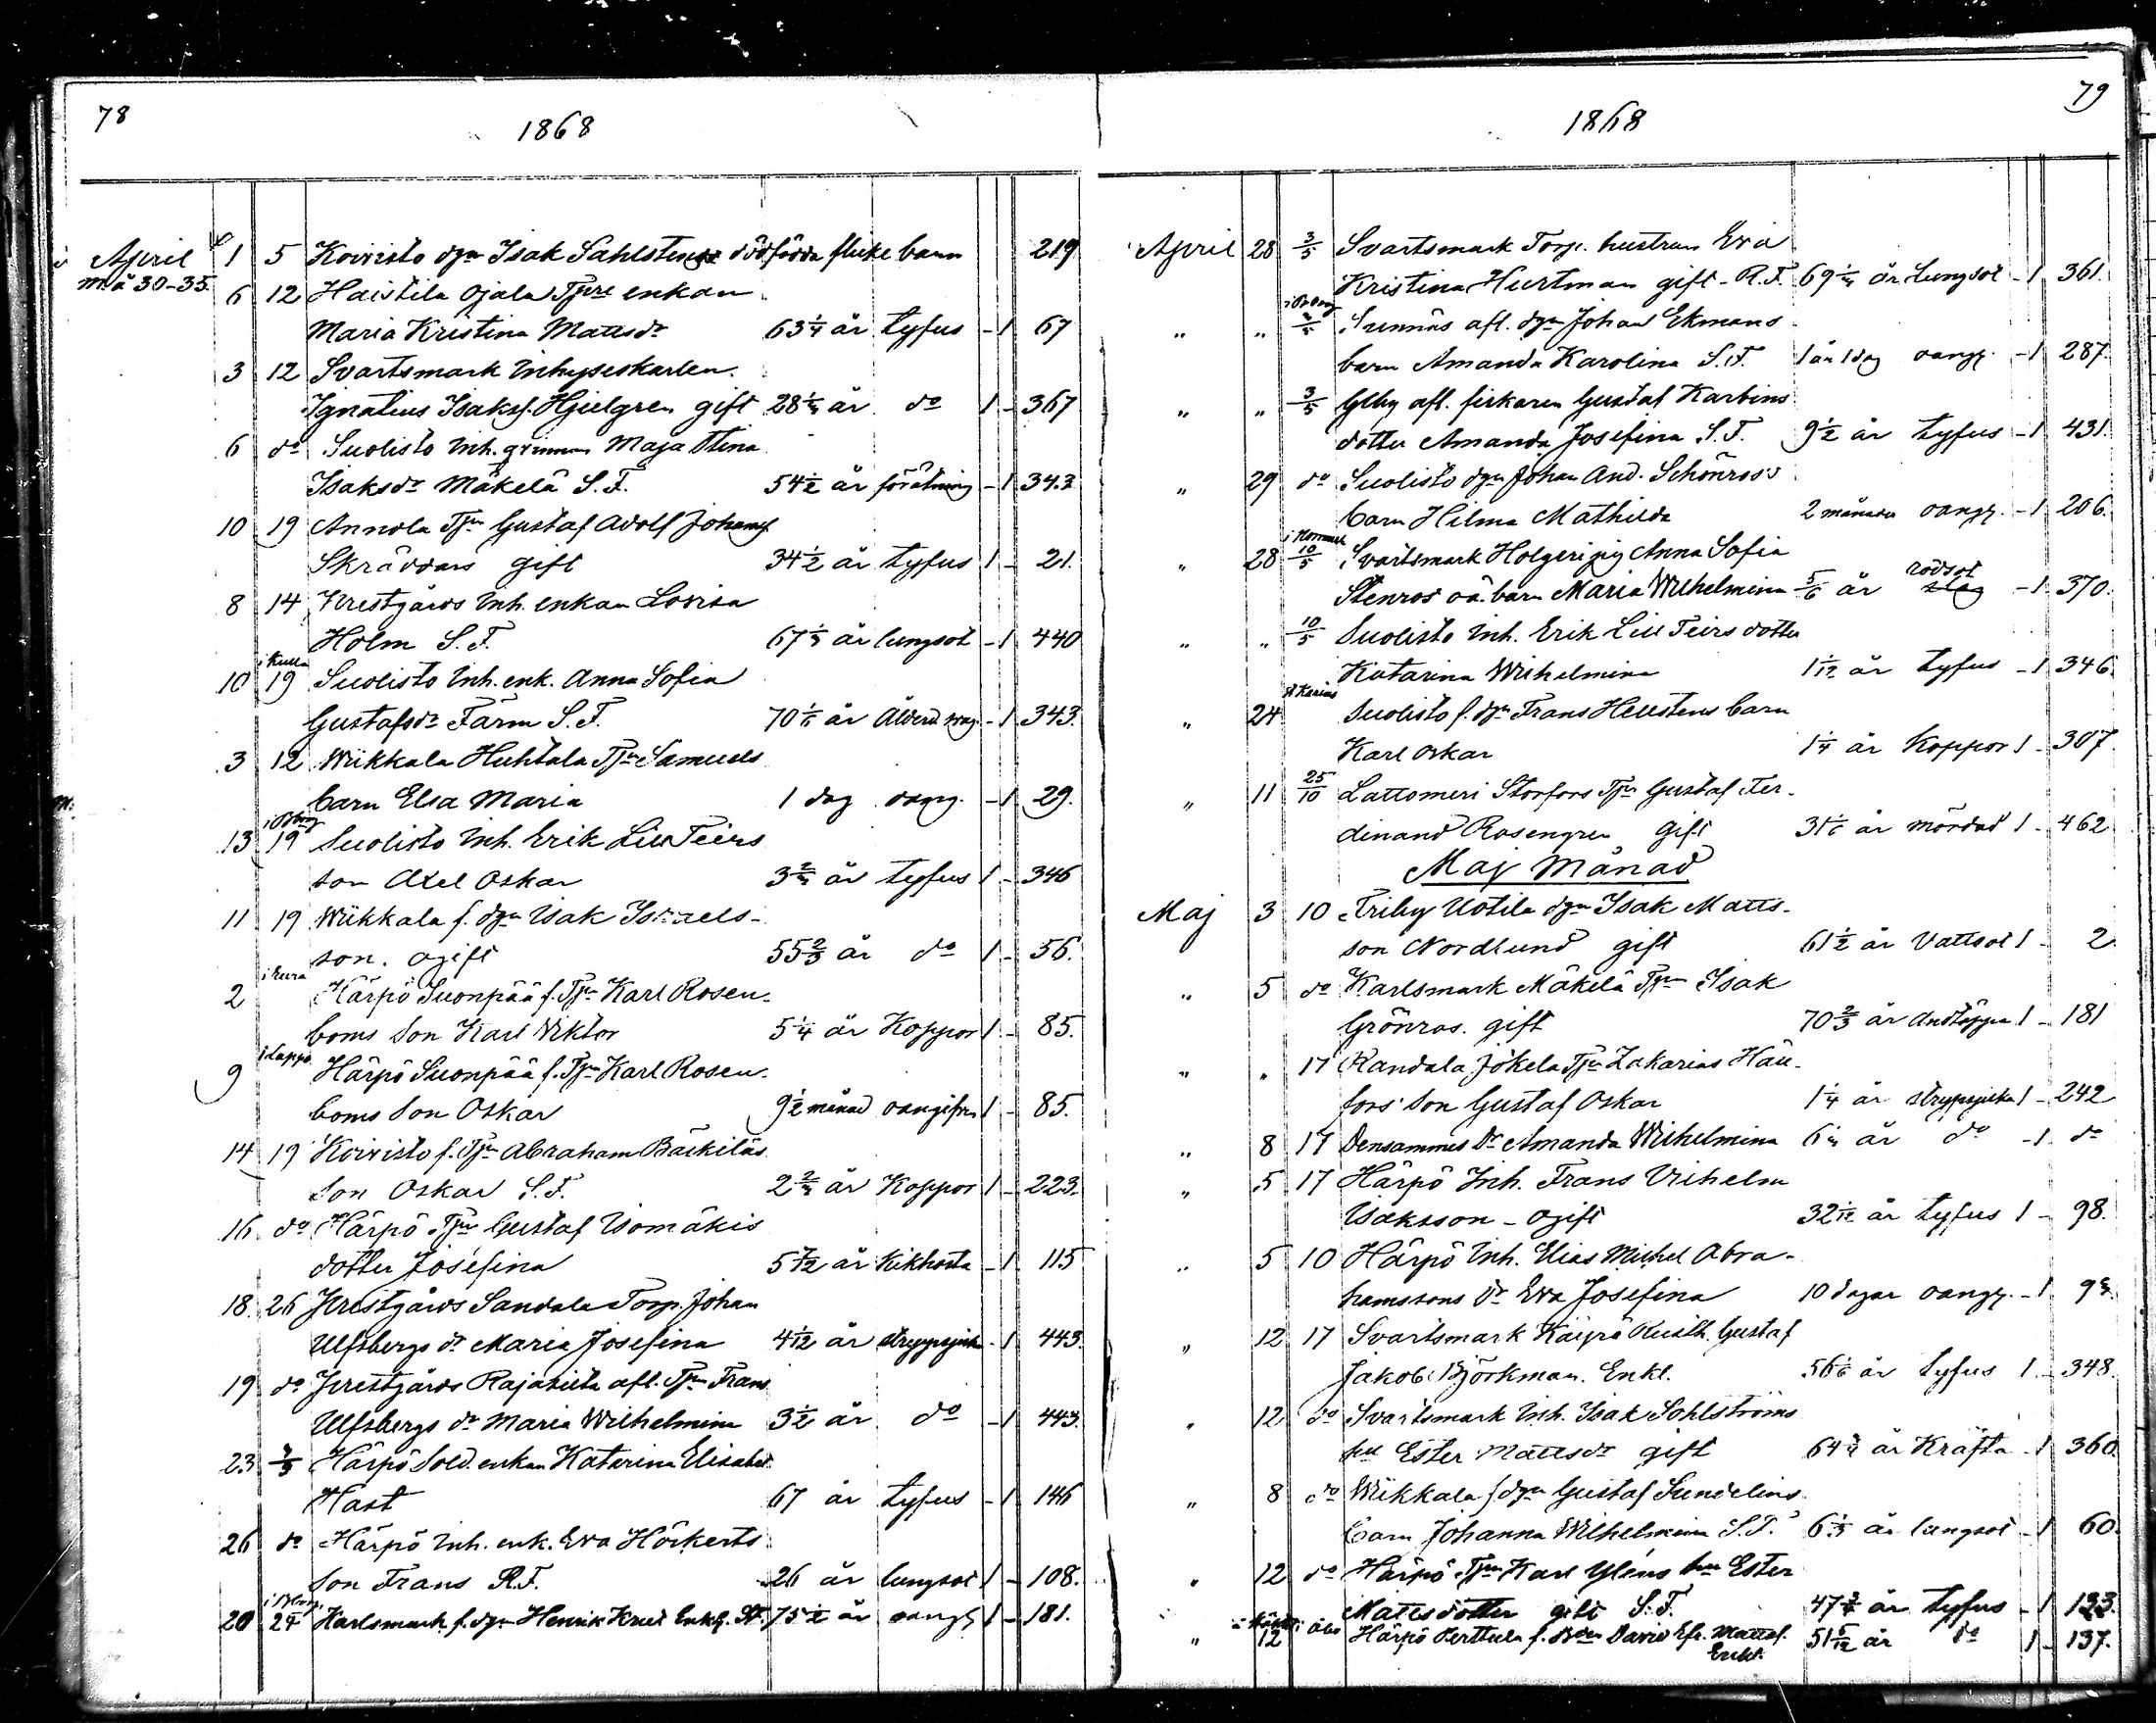 78
1868
April 1 5 Koivisto dgn Isak Sahlstens dödfödda flicke barn 219
må 30-35.
6 12 Haistila Ojala Tjre enkan
Maria Kristina Mattsdr 63 1/4 år tyfus - 1 67
3 12 Svartsmark Inhyseskarlen
Ignatius Isakss. Hjelgren gift 28 år do 1 - 367
6 do Suolisto Inh. qvinnan Maja Stina
Isaksdr Mäkelä S. F. 54 1/2 år förätning - 1 343
10 19 Annola Tjn Gustaf Adolf Johanss
Skräddars gift 34 1/2 år tyfus 1 - 21.
8 14 Prestgårds Inh. enkan Lovisa
Holm S. F. 67 år lungsot - 1 440
i Kulla
10 19 Suolisto Inh. enk. Anna Sofia
Gustafsdr Färm S. F. 70 1/6 år Ålderd. svag. - 1 343.
3 12 Wiikkala Huhtala Tjn Samuels
barn Elsa Maria 1 dag oang. - 1 29.
i Bborg
13 19 Suolisto Inh. Erik Lill Teirs
son Axel Oskar 3 år tyfus 1 - 346
11 19 Wiikkala f. dgn Isak Israels-
son. ogift 55 2/3 år do 1 - 56.
i Eura
2 Härpö Suonpää f. Tjn Karl Rosen-
boms Son Karl Viktor 5 1/4 år Koppor 1 - 85.
i Lappo
9 Härpö Suonpää f. Tjn Karl Rosen-
boms Son Oskar 9 1/2 månad oangifven 1 - 85.
14 19 Koivisto f. Tjn Abraham Bäckiläs
Son Oskar S. F. 2 år Koppor 1 - 223.
16 do Härpö Tjn Gustaf Isomäkis
dotter Josefina 5 7/12 år Kikhosta - 1 115
18 26 Prestgårds Sandala Torp. Johan
Ulfsbergs dr Maria Josefina 4 1/12 år strypsjuka - 1 443.
19 do Prestgårds Rajasilta afl. Tjn Frans
Ulfsbergs dr Maria Wilhelmina 3 1/2 år do - 1 443.
23 Härpö Sold. enkan Katarina Elisabet
Hast 67 år tyfus - 1 146
26 do Härpö Inh. enk. Eva Höckerts
Son Frans R.F. 26 år lungsot 1 - 108.
i Bborg
20 24 Karlsmark f. dgn Henrik Krut Enkl. SF. 75 1/2 år oangf 1 - 181.
79
1868
April 28 3/5 Svartsmark Torp. hustrun Eva
Kristina Hurtman gift - R.F. 69 år Lungsot - 1 361.
i Bborg
" " Sunnäs afl. dgn Johan Ekmans
barn Amanda Karolina S. F. 1 år 1 dag oangf. - 1 287.
" " 3/5 Ytby afl. firkaren Gustaf Karbins
dotter Amanda Josefina S. F. 9 1/2 år tyfus - 1 431.
" 29 do Suolisto dgn Johan And. Schönross
barn Hilma Mathilda 2 månader oangf. - 1 206.
" 28 10/5 Svartsmark Holgeri pig Anna Sofia
Stenros oä. barn Maria Wilhelmina 5/6 år rödsot - 1 370.
" " 10/5 Suolisto Inh. Erik Lill Teirs dotter
Katarina Wilhelmina 1 1/12 år tyfus - 1 346.
St Karins
" 24 Suolisto f. dgn Frans Hellstens barn
Karl Oskar 1 1/4 år Koppor 1 - 307
" 11 25/10 Lattomeri Storfors Tjn Gustaf Fer-
dinand Rosengren Gift 31 1/6 år mördad 1 - 462
Maj Månad
Maj 3 10 Friby Uotila dgn Isak Matts-
son Nordlund gift 61 1/2 år Vattsot 1 - 2.
" 5 do Karlsmark Mäkelä Tjn Isak
Grönros. gift 70 2/3 år Andtäppa 1 - 181
" " 17 Randala Jokela Tjn Zakarias Häll-
fors' Son Gustaf Oskar 1 1/4 år strypsjuka 1 - 242
" 8 17 Densammes Dr Amanda Wilhelmina 6 år do - 1 do
" 5 17 Härpö Inh. Frans Vilhelm
Isaksson - ogift 32 1/12 år tyfus 1 - 98.
" 5 10 Härpö Inh. Elias Michel Abra-
hamssons Dr Eva Josefina 10 dagar oangf. - 1
" 12 17 Svartsmark Käiprä Rusth. Gustaf
Jakob Björkman. Enkl. 56 1/6 år tyfus 1 - 348.
" 12 do Svartsmark Inh. Isak Sohlströms
hu Ester Mattsdr gift 64 år Kräfta - 1 360.
" 8 do Wiikkala f dgn Gustaf Sundelins
barn Johanna Wilhelmina S. F. 6 1/3 år lungsot - 1 60.
" 12 do Härpö Tjn Karl Yléns hu Ester
Mattsdotter gift S. F. 47 3/4 år tyfus - 1 123.
" 12 i Åbo Härpö Perttula f. David Efr. Mattss. 51 5/12 år do 1 - 137.
Enkl.